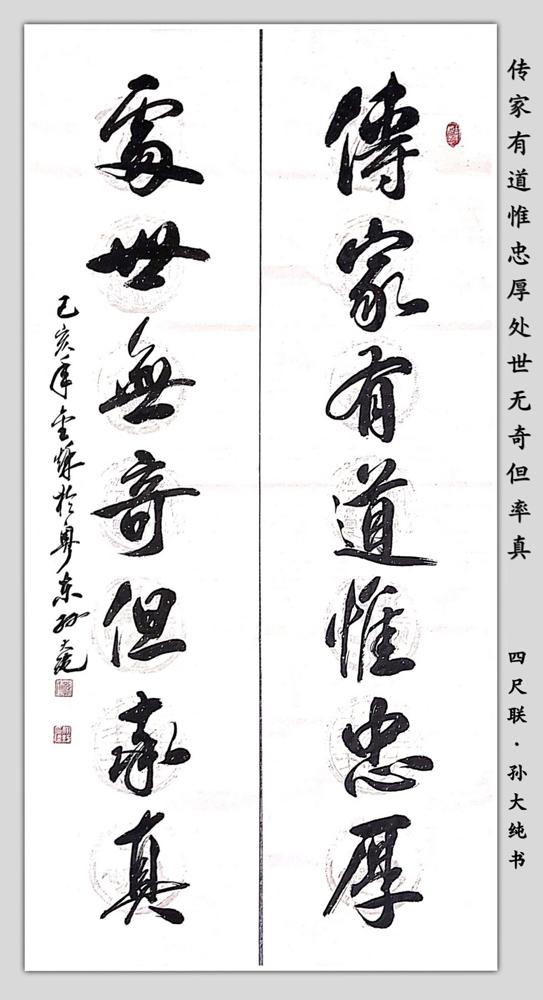 传家有道惟忠厚处世无奇但率真
四尺联·孙大纯书
傳家有道惟忠厚
處世無奇但率真
己亥年金秋於粤东孙大纯